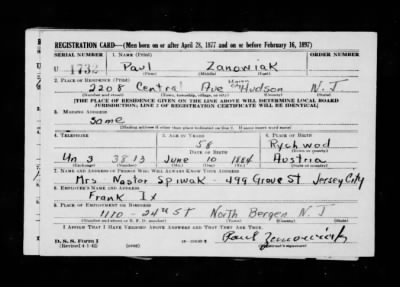 REGISTRATION CARD—(Men born on or after April 28, 1877 and on or before February 16, 1897)
SERIAL NUMBER 1. NAME (Print) ORDER NUMBER
U 1732 Paul Zanowiak
(First) (Middle) (Last)
2. PLACE OF RESIDENCE (Print)
2208 Central Ave Union City Hudson N. J
(Number and street) (Town, township, village, or city) (County) (State)
[THE PLACE OF RESIDENCE GIVEN ON THE LINE ABOVE WILL DETERMINE LOCAL BOARD
JURISDICTION; LINE 2 OF REGISTRATION CERTIFICATE WILL BE IDENTICAL]
3. MAILING ADDRESS
Same
[Mailing address if other than place indicated on line 2. If same insert word same]
4. TELEPHONE 5. AGE IN YEARS 6. PLACE OF BIRTH
58 Rychwod
DATE OF BIRTH (Town or county)
Un 3 3813 June 10 1884 Austria
(Exchange) (Number) (Mo.) (Day) (Yr.) (State or country)
7. NAME AND ADDRESS OF PERSON WHO WILL ALWAYS KNOW YOUR ADDRESS
Mrs Nestor Spiwak - 499 Grove St Jersey City
8. EMPLOYER'S NAME AND ADDRESS
Frank Ix
9. PLACE OF EMPLOYMENT OR BUSINESS
1110 - 24th ST North Bergen N. J
(Number and street or R. F. D. number) (Town) (County) (State)
I AFFIRM THAT I HAVE VERIFIED ABOVE ANSWERS AND THAT THEY ARE TRUE.
D. S. S. Form 1
(Revised 4-1-42) (over) Paul Zanowiak
(Registrant's signature)